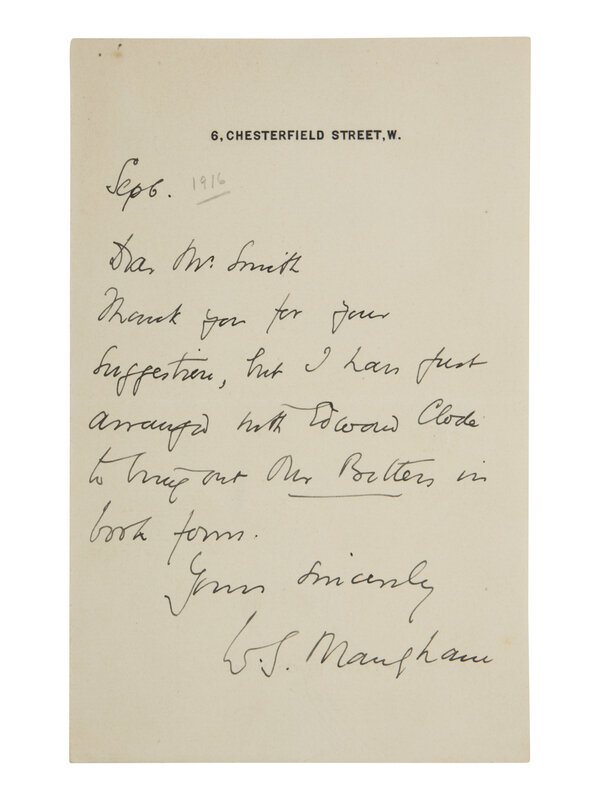 6, CHESTERFIELD STREET, W.
Sep 6. 1916
Dear Mr. Smith
Thank you for your
suggestion, but I have just
arranged with Edward Clode
to bring out Our Betters in
book form.
Yours sincerely
W. S. Maugham